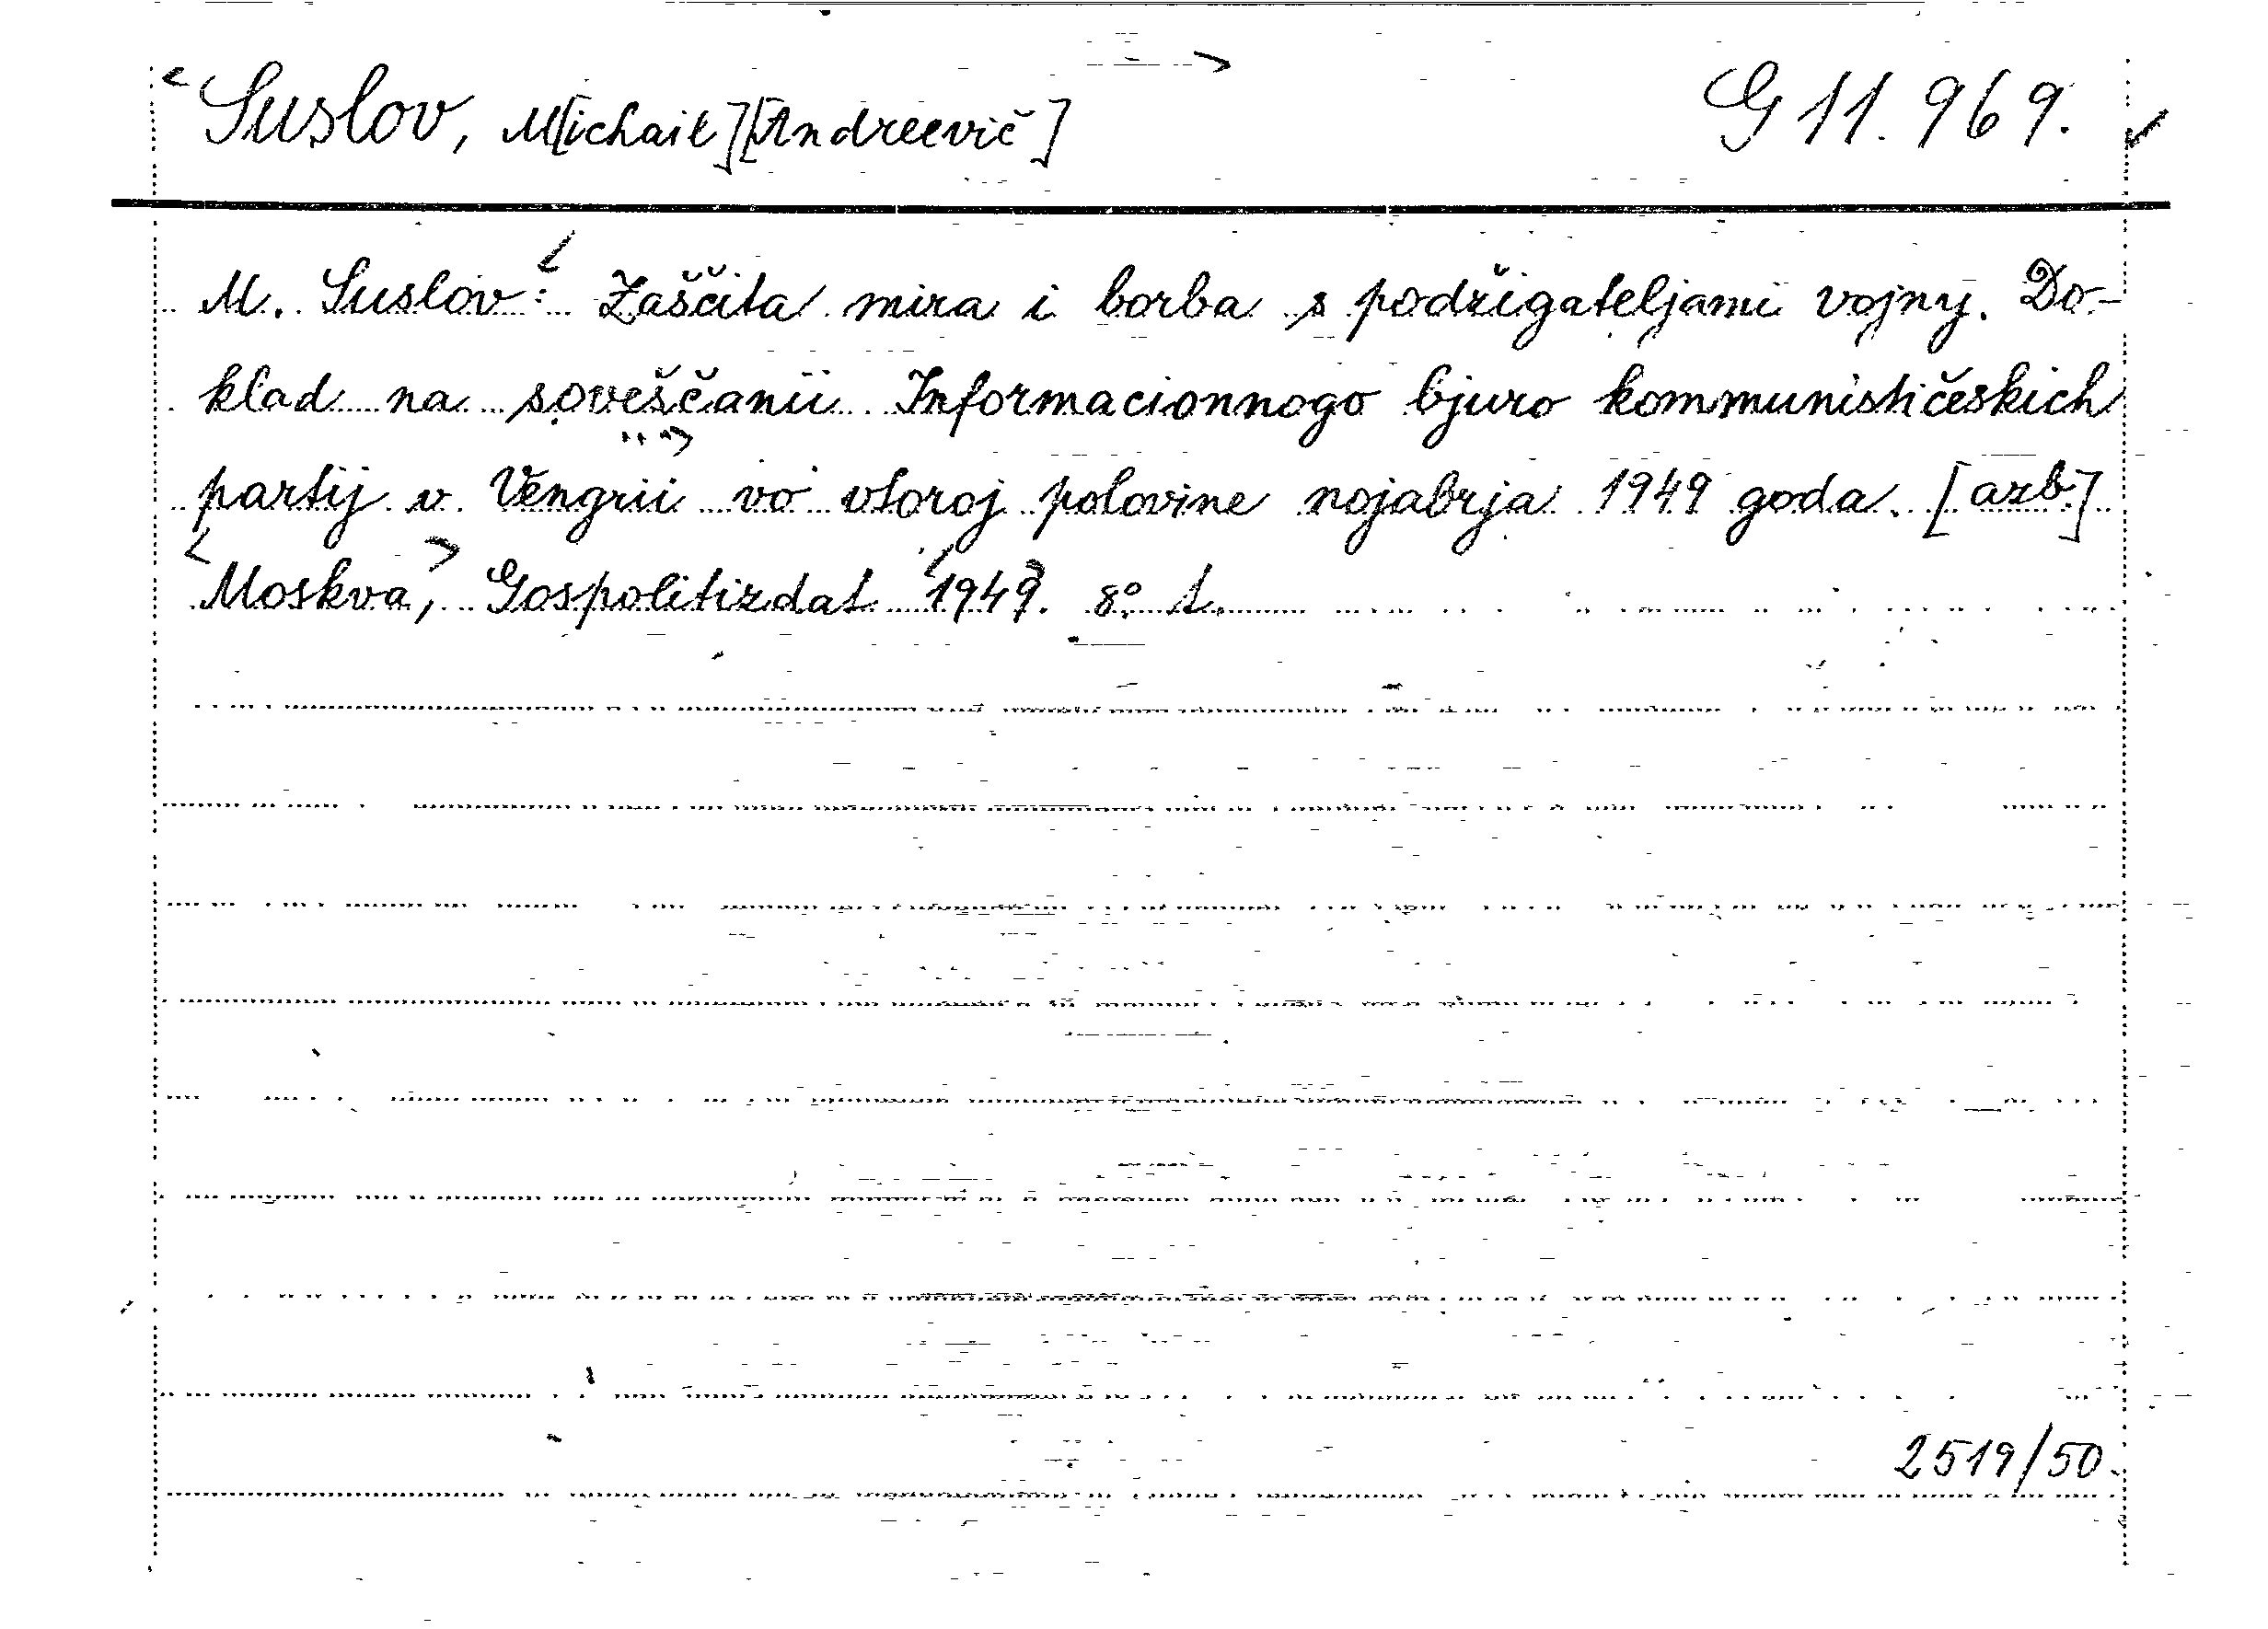 Suslov, M[ichail][Andreevič] G 11.969.
M. Suslov: Zaščita mira i borba s podžigateljami vojny. Do-
klad na soveščanii Informacionnogo bjuro kommunističeskich
partij v Vengrii vo vtoroj polovine nojabrja 1949 goda. [azb.]
Moskva, Gospolitizdat 1949. 8° 1.
2519/50.